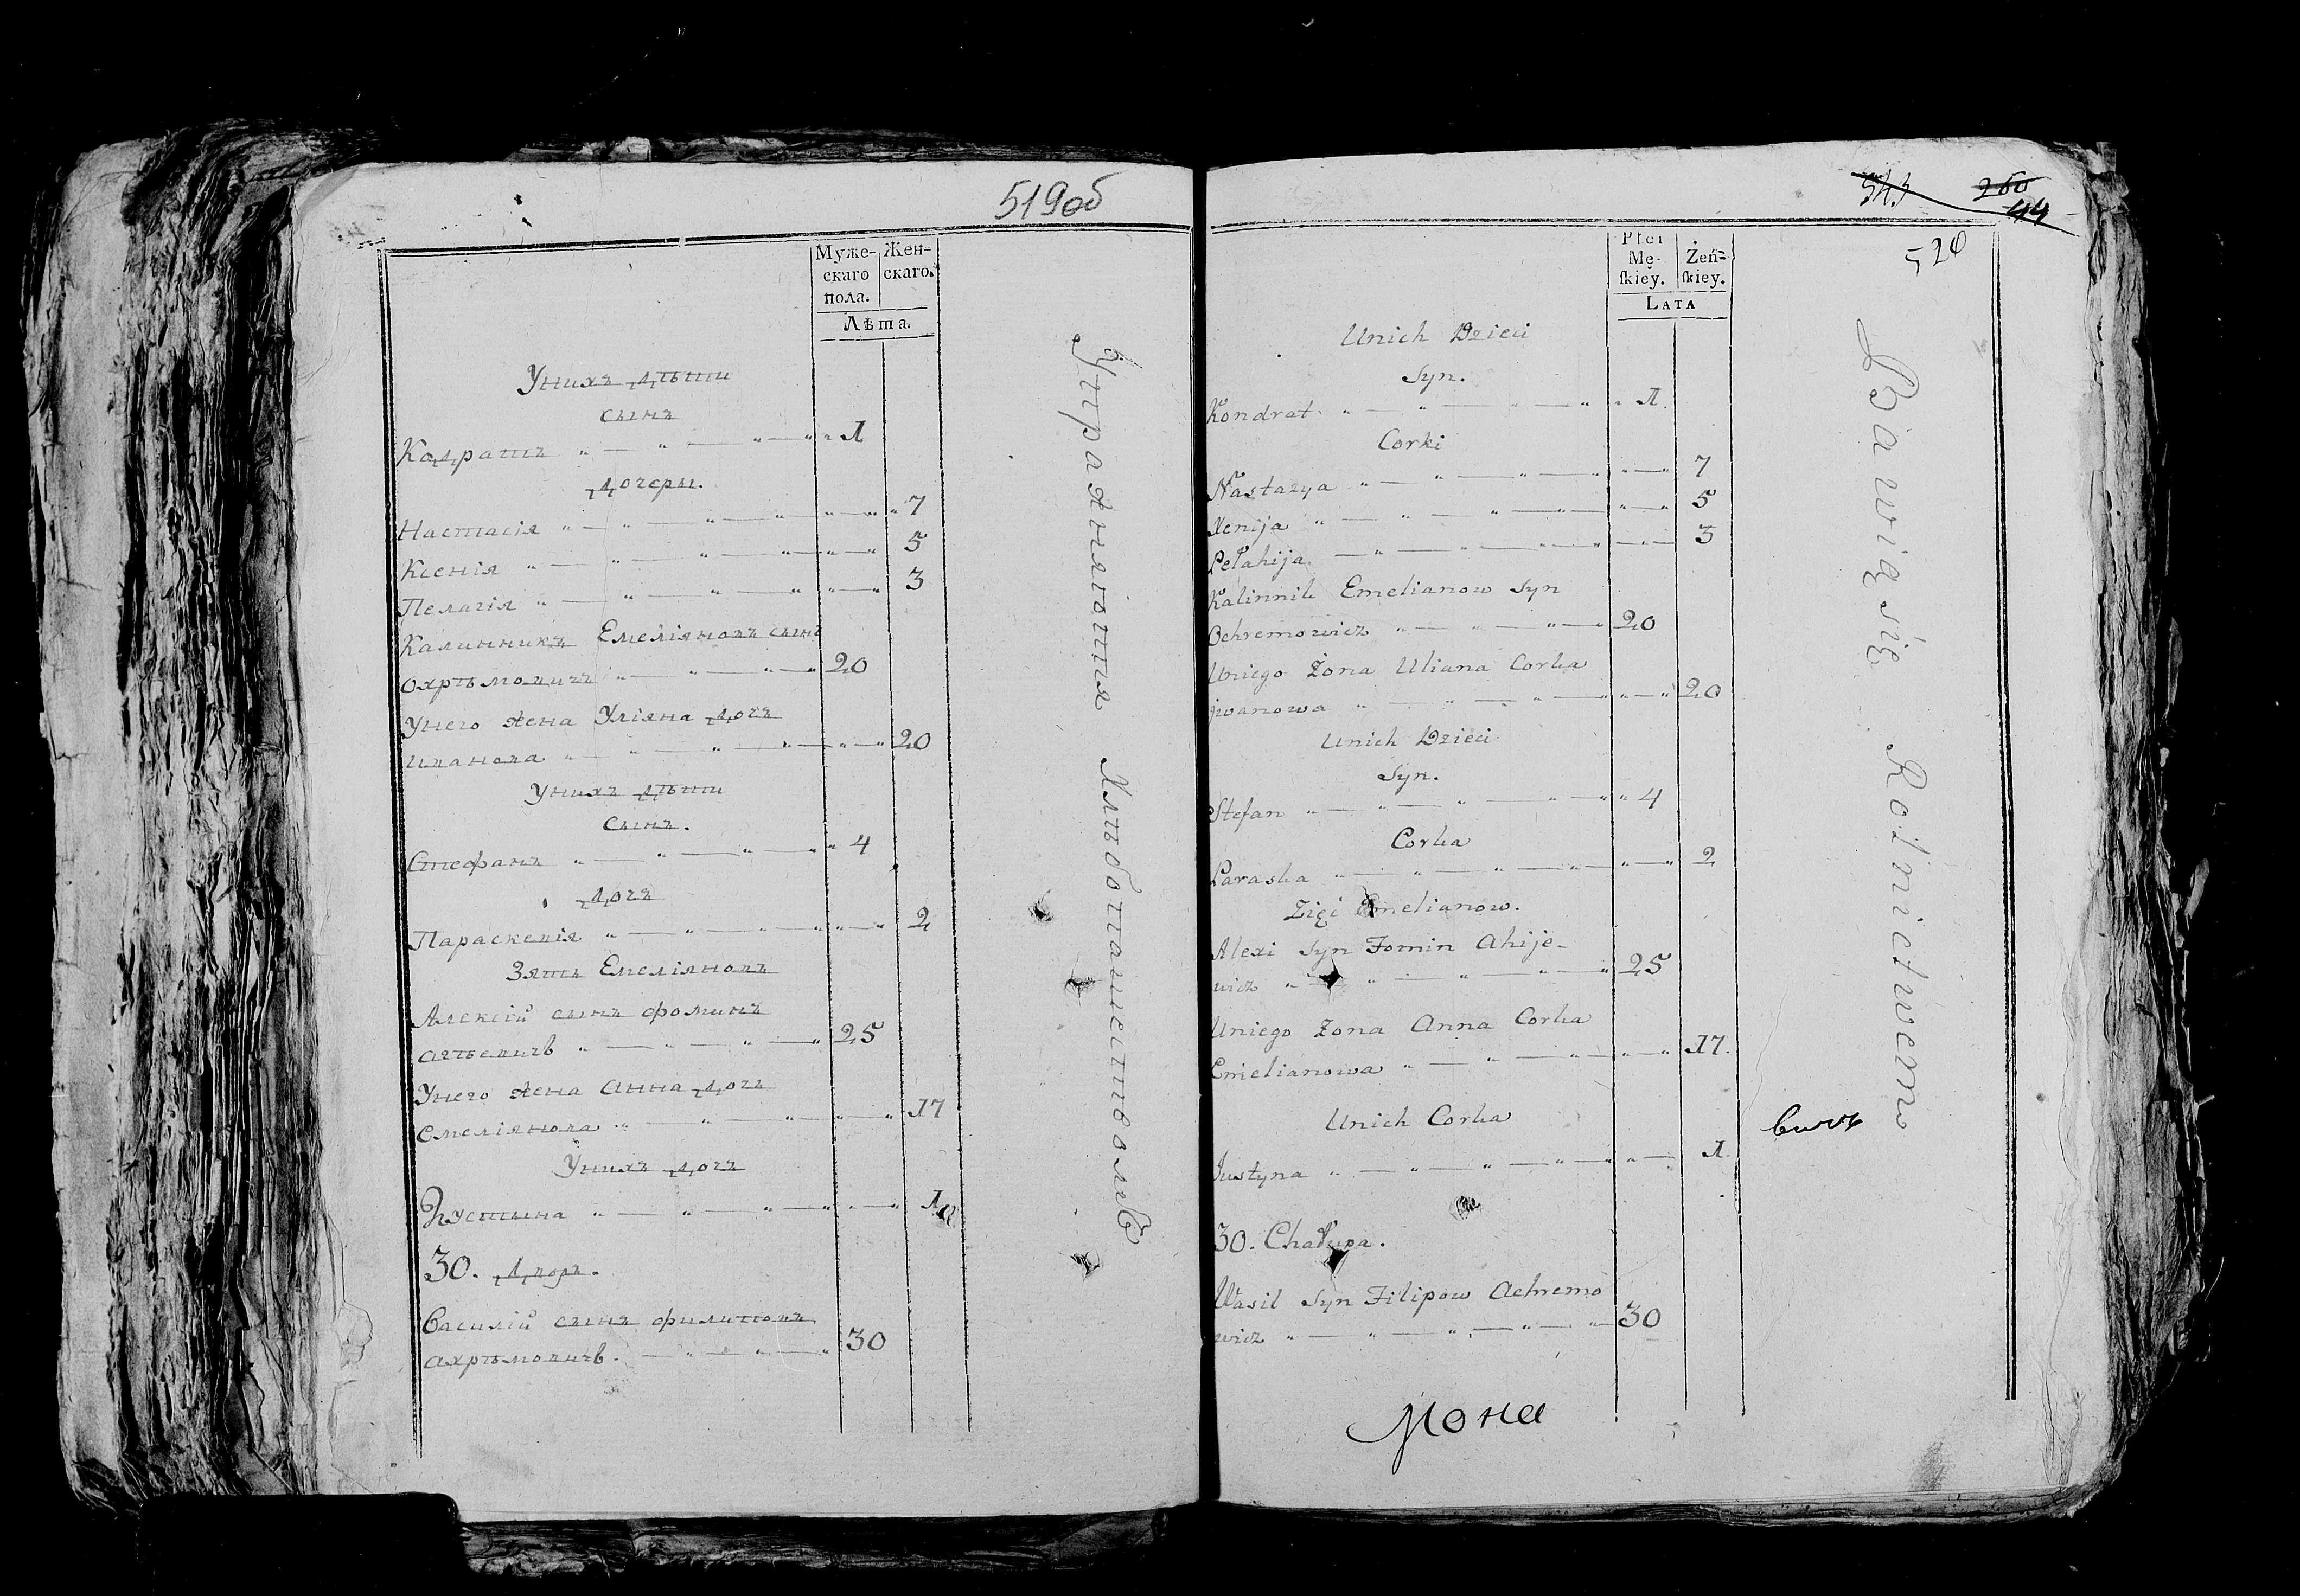 519об
Муже-
скаго
пола.
Жен-
скаго.
Лѣта.
Унихъ дѣти
сынъ
Кадратъ 1
дочери.
Настасія 7
Ксенія 5
Пелагія 3
Калинникъ Емеліановъ сынъ
охрѣмовичъ 20
Унего жена Уліяна дочь
иванова 20
Унихъ дѣти
сынъ.
Стефанъ 4
дочь
Параскевія 2
Зять Емеліяновъ
Алексій сынъ фоминъ
агѣевичь 25
Унего жена Анна дочь
емеліянова 17
Унихъ дочь
Іустина 1
30. дворъ.
Василій сынъ филиповъ
ахрѣмовичь. 30
Упражняются Хлѣбопашествомъ
543
260
44
520
Płci
Mę-
ſkiey.
Żeń-
ſkiey.
Lata
Unich Dzieci
Syn.
Kondrat 1
Corki
Nastazya 7
Xenija 5
Pełahija 3
Kalinnik Emelianow Syn
Ochremowicz 20
Uniego Żona Uliana Corka
jwanowa 20
Unich Dzieci
Syn.
Stefan 4
Corka
Paraska 2
Zięć Emelianow.
Alexi Syn Fomin Ahije-
wicz 25
Uniego Żona Anna Corka
Emelianowa 17.
Unich Corka
Justyna 1
30. Chałupa.
Wasil Syn Filipow Achremo
wicz 30
Bawią się Rolnictwem
вичъ
Мона